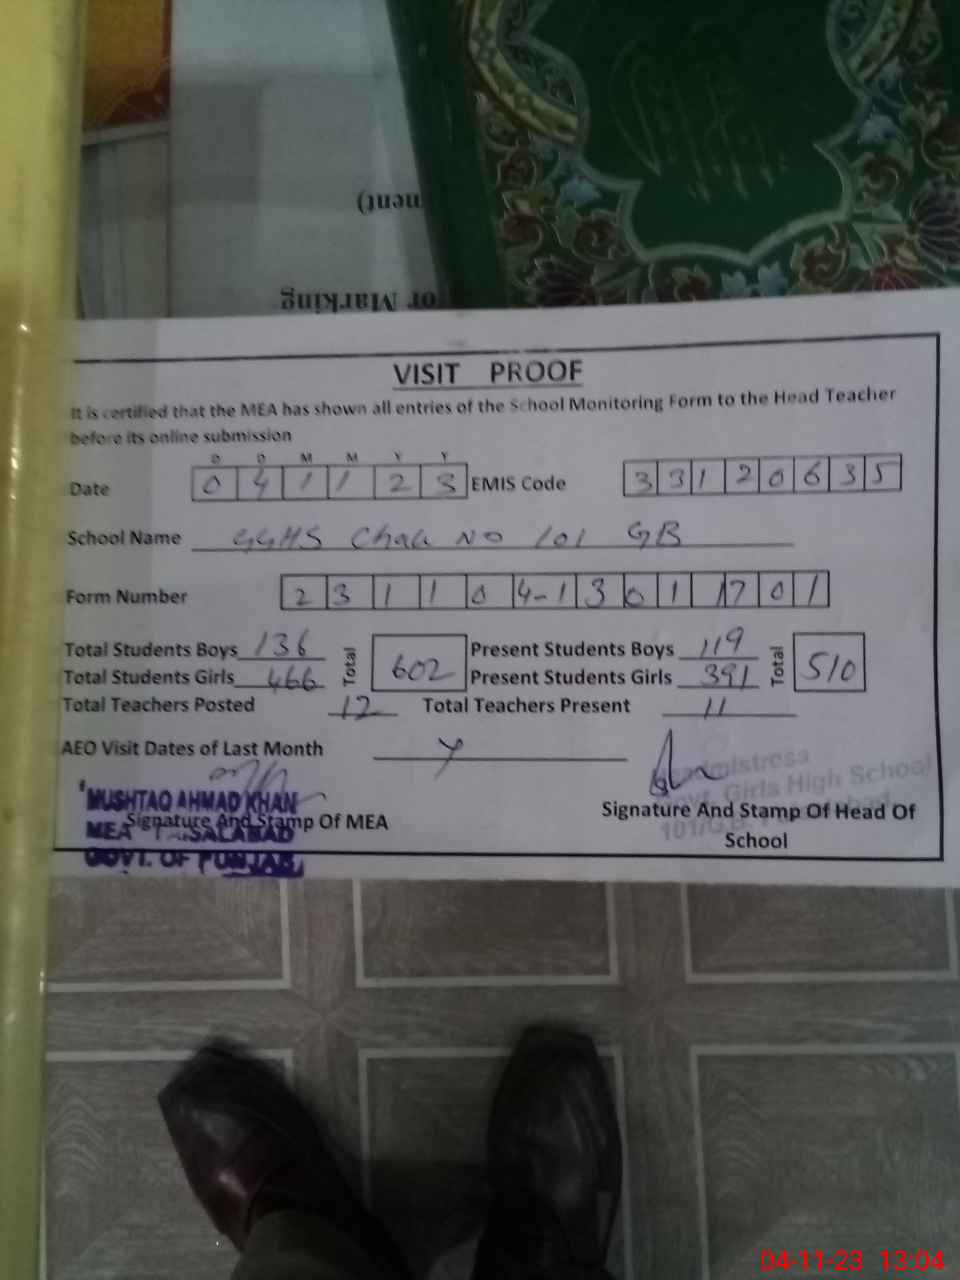 ment)
or Marking
VISIT PROOF
It is certified that the MEA has shown all entries of the School Monitoring Form to the Head Teacher
before its online submission
D D M M Y Y
Date 0 4 1 1 2 3 EMIS Code 3 3 1 2 0 6 3 5
School Name GGHS Chak No 101 GB
Form Number 2 3 1 1 0 4-1 3 0 1 1 7 0 1
Total Students Boys 136 Total 602 Present Students Boys 119 Total 510
Total Students Girls 466 Present Students Girls 391
Total Teachers Posted 12 Total Teachers Present 11
AEO Visit Dates of Last Month
MUSHTAQ AHMAD KHAN
MEA FAISALABAD
GOVT. OF PUNJAB
Signature And Stamp Of MEA
Headmistress
Govt. Girls High School
101/G.B.
Signature And Stamp Of Head Of
School
04-11-23 13:04